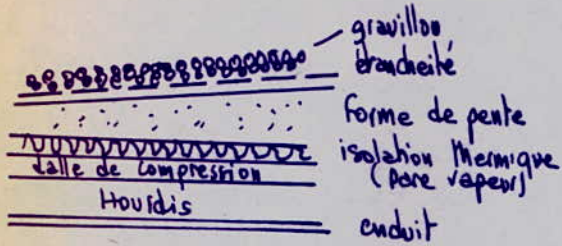 gravillon
étancheité
forme de pente
isolation thermique
(pare vapeur)
dalle de compression
Hourdis
enduit